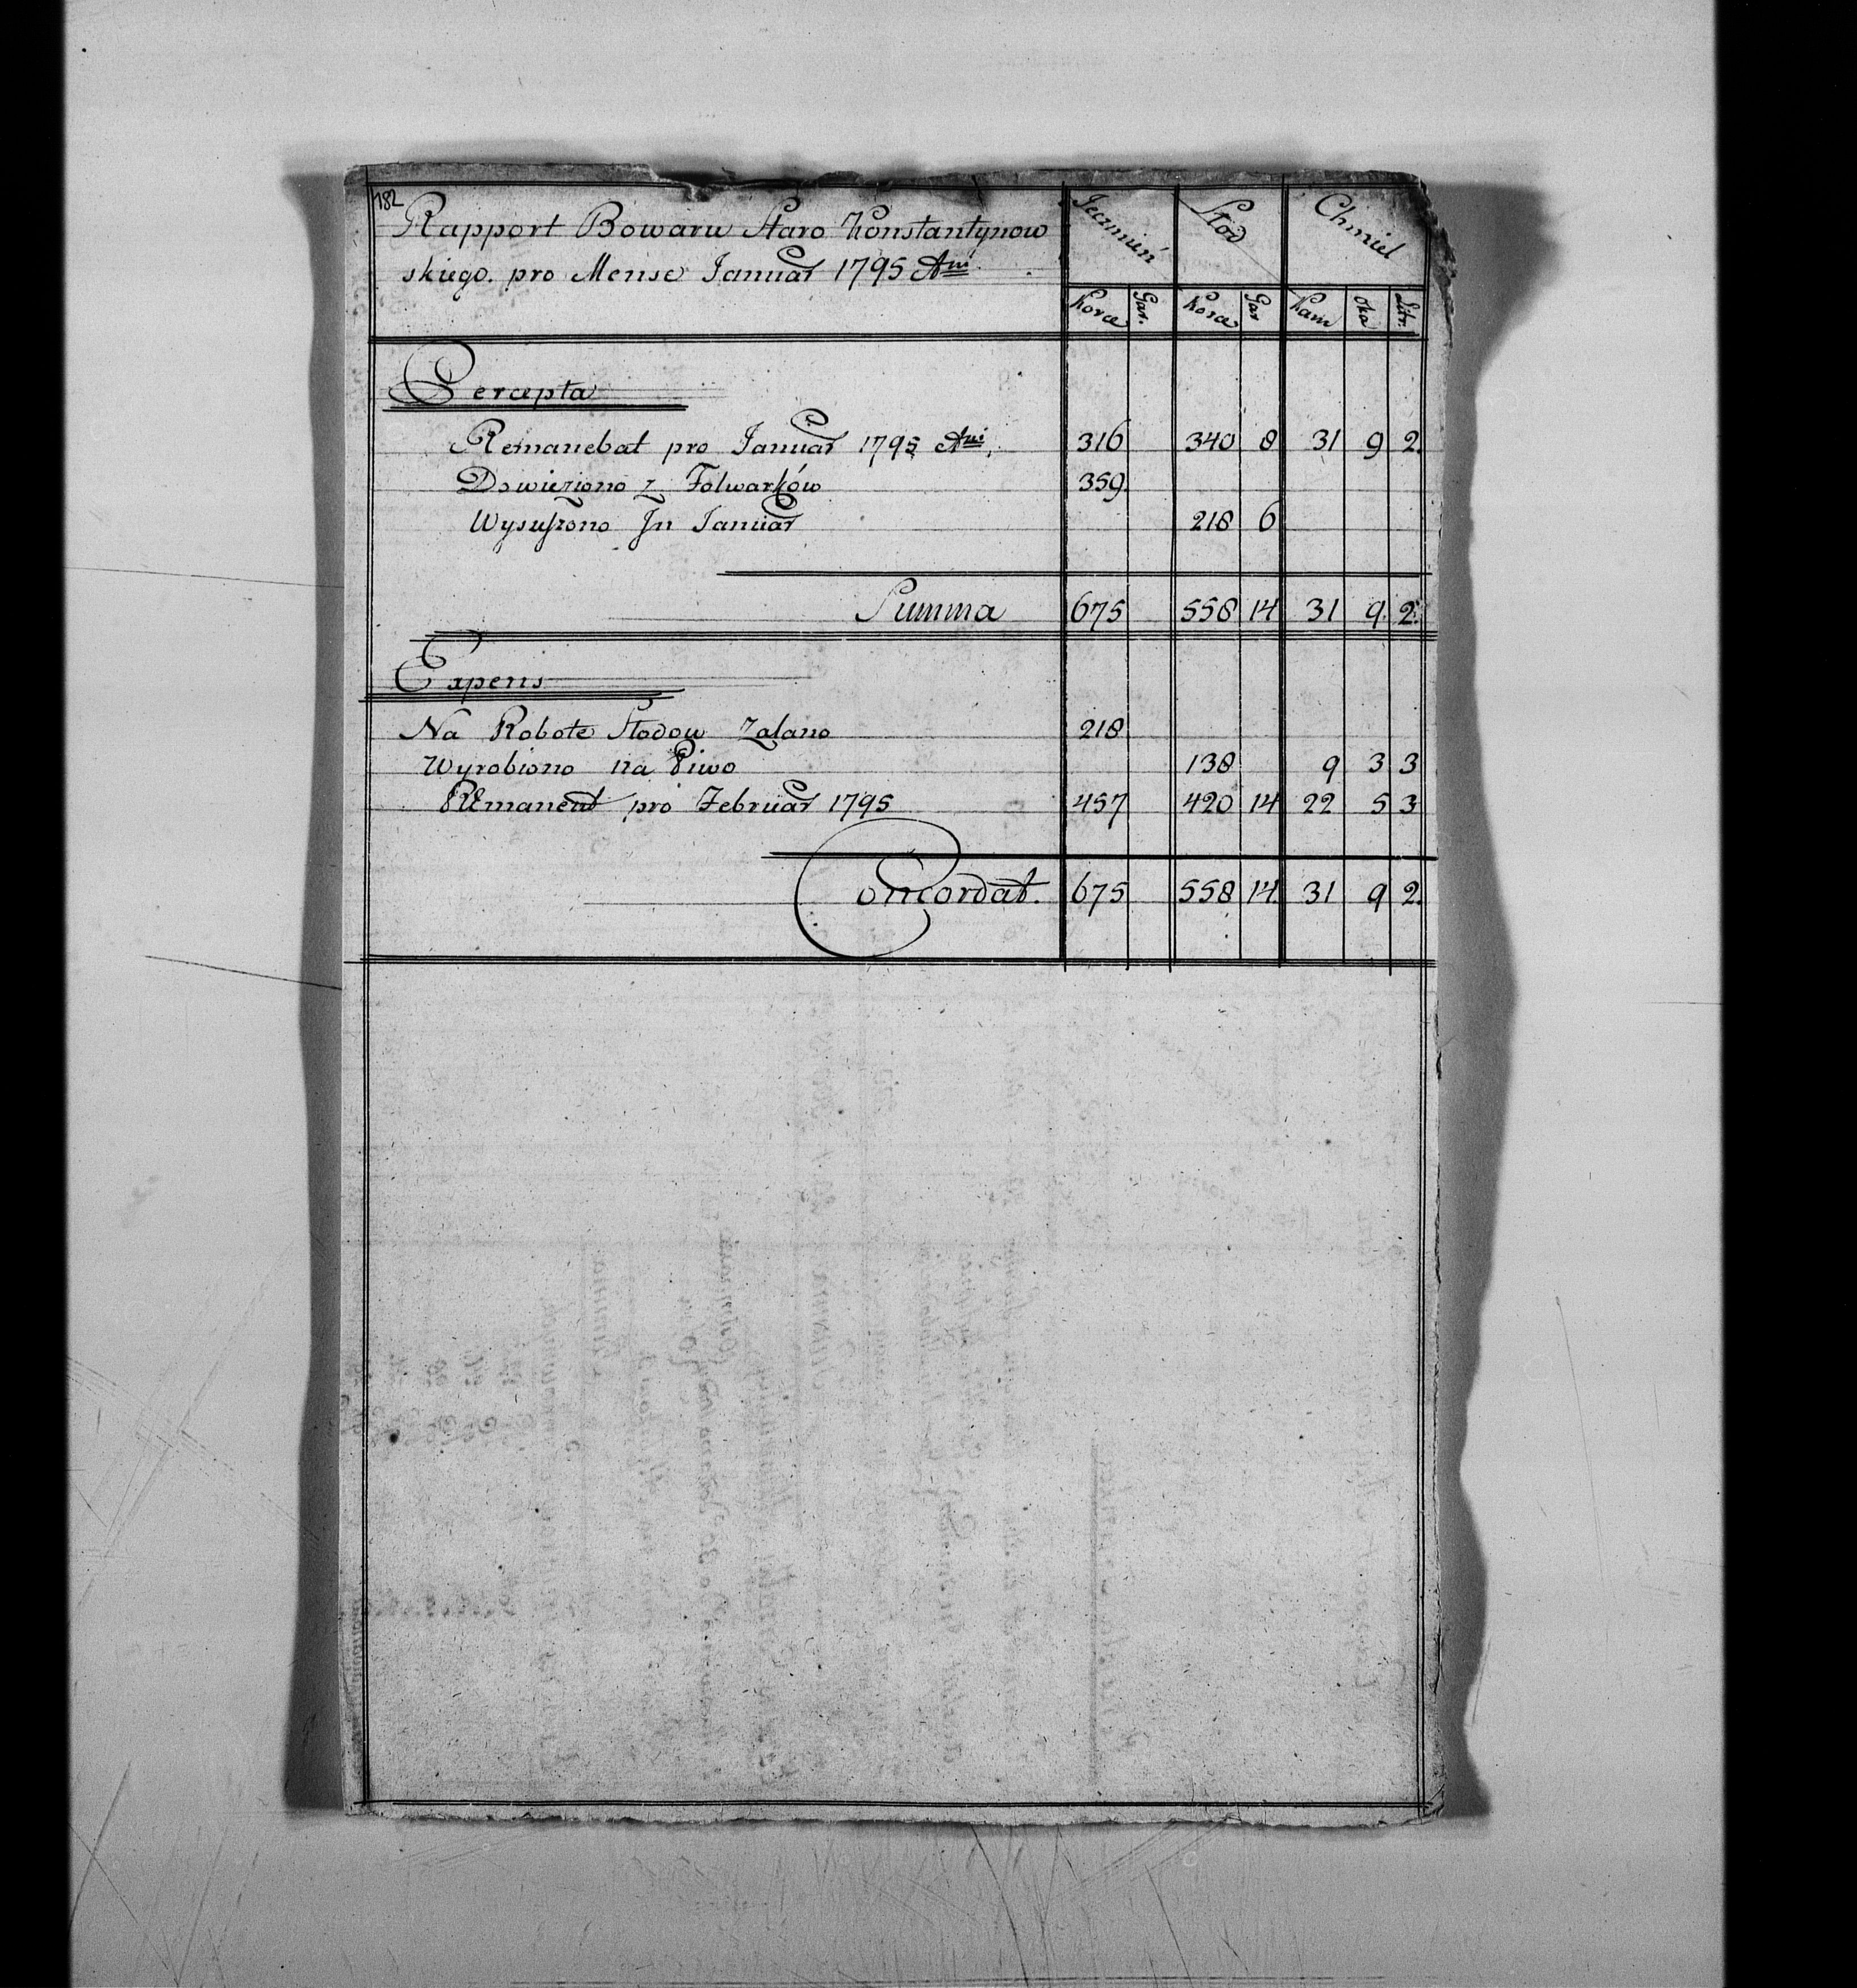 182
Rapport Bowaru Staro Konstantynow
skiego. pro Mense Januar 1795 Ani
Jęczmień Słód Chmiel
korce Gar. korce Gar kam oka Litr.
Percepta
Remanebat pro Januar 1795 Ani. 316 340 8 31 9 2.
Dowieziono z Folwarków 359.
Wysuszono Jn Januar 218 6
Summa 675 558 14 31 9. 2.
Expens
Na Robote Słodow Zalano 218
Wyrobiono na Piwo 138 9 3 3
REmanent pro Februar 1795 457 420 14 22 5 3
Concordat. 675 558 14. 31 9 2.